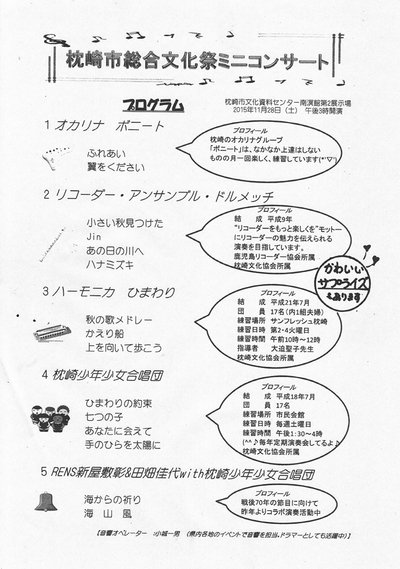 枕崎市総合文化祭ミニコンサート
プログラム
枕崎市文化資料センター南溟館第2展示場
2015年11月28日(土) 午後3時開演
1 オカリナ ポニート
ふれあい
翼をください
プロフィール
枕崎のオカリナグループ
「ポニート」は、なかなか上達はしない
ものの月一回楽しく、練習しています(*'▽')
2 リコーダー・アンサンブル・ドルメッチ
小さい秋見つけた
Jin
あの日の川へ
ハナミズキ
プロフィール
結 成 平成9年
"リコーダーをもっと楽しくを"モットー
にリコーダーの魅力を伝えられる
演奏を目指しています。
鹿児島リコーダー協会所属
枕崎文化協会所属
かわいい
サプライズ
もあります
3 ハーモニカ ひまわり
秋の歌メドレー
かえり船
上を向いて歩こう
プロフィール
結 成 平成21年7月
団 員 17名(内1組夫婦)
練習場所 サンフレッシュ枕崎
練習日時 第2・4火曜日
練習時間 午前10時~12時
指導者 大迫聖子先生
枕崎文化協会所属
4 枕崎少年少女合唱団
ひまわりの約束
七つの子
あなたに会えて
手のひらを太陽に
プロフィール
結 成 平成18年7月
団 員 17名
練習場所 市民会館
練習日時 毎週土曜日
練習時間 午後1:30~4時
(^^♪毎年定期演奏会してるよ♪
枕崎文化協会所属
5 RENS新屋敷彰&田畑佳代with枕崎少年少女合唱団
海からの祈り
海 山 風
プロフィール
戦後70年の節目に向けて
昨年よりコラボ演奏活動中
【音響オペレーター :小城一男 (県内各地のイベントで音響を担当、ドラマーとしても活躍中)】